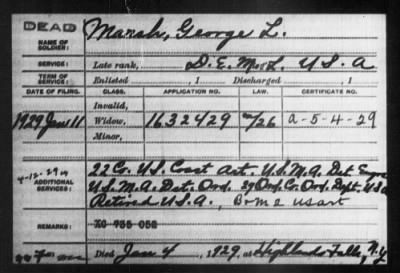 DEAD
NAME OF SOLDIER:
Marsh, George L.
SERVICE:
Late rank, D. E. M & L. U S A
TERM OF SERVICE:
Enlisted , 1 Discharged , 1
DATE OF FILING. CLASS. APPLICATION NO. LAW. CERTIFICATE NO.
Invalid,
1929 Jan 11 Widow, 1632429 /26 a-5-4-29
Minor,
4-12-29
ADDITIONAL SERVICES:
22 Co. U.S. Coast Art. U.S.M.A. Det Engrs
U.S.M.A. Det. Ord. 29 Ord. Co. Ord. Dept. U S A
Retired U.S.A.,
REMARKS:
XC 735 052
Died Jan 4, 1929, at Highland Falls, N.Y.